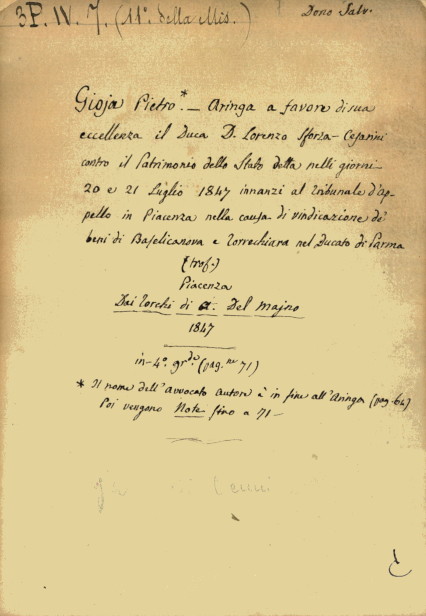 3P. IV. 7. (11ª della Mis.)
Dono Salv.
Gioja Pietro.* — Aringa a favore di sua
eccellenza il Duca D. Lorenzo Sforza-Cesarini
contro il Patrimonio dello Stato detta nelli giorni
20 e 21 Luglio 1847 innanzi al Tribunale d'ap-
pello in Piacenza nella causa di vindicazione de'
beni di Baselicanova e Torrechiara nel Ducato di Parma
Piacenza
Dai Torchi di A. Del Majno
1847
in-4º grde (pag.ne 71)
* Il nome dell'avvocato autore è in fine all'Aringa (pag. 64)
Poi vengono Note fino a 71 —